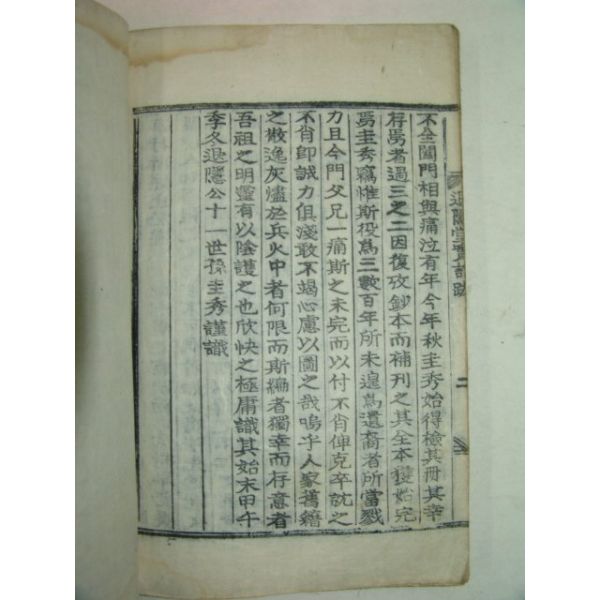 不全闔門相與痛泣有年今年秋圭秀始得檢其冊其幸
存焉者過三之二因復攷鈔本而補刊之其全本獲始完
焉圭秀竊惟斯役爲三數百年所未遑爲遺裔者所當戮
力且今門父兄一痛斯之未完而以付不肖俾克卒就之
不肖卽誠力俱淺敢不竭心慮以圖之哉嗚乎人家舊籍
之散逸灰燼於兵火中者何限而斯編者獨幸而存意者
吾祖之明靈有以陰護之也欣快之極庸識其始末甲午
季冬退隱公十一世孫圭秀謹識